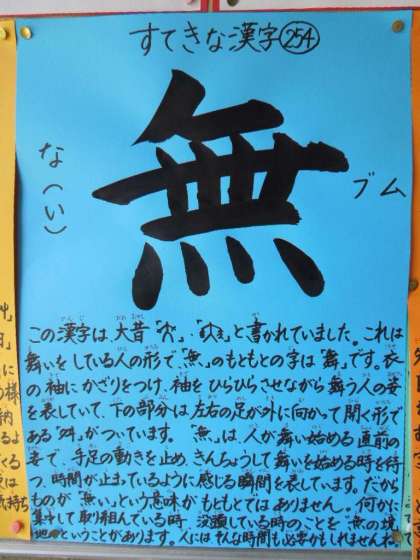 すてきな漢字254
無
な(い)
ブム
この漢字は、大昔「」、「」と書かれていました。これは
舞いをしている人の形で「無」のもともとの字は「舞」です。衣
の袖にかざりをつけ、袖をひらひらさせながら舞う人の姿
を表していて、下の部分は左右の足が外に向かって開く形で
ある「舛」がついています。「無」は、人が舞い始める直前の
姿で、手足の動きを止め、きんちょうして舞いを始める時を待
つ、時間が止まっているように感じる瞬間を表しています。だから
ものが「無い」という意味がもともとではありません。何かに
集中して取り組んでいる時、没頭している時のことを「無の境
地」ということがあります。人にはそんな時間も必要かもしれませんね。